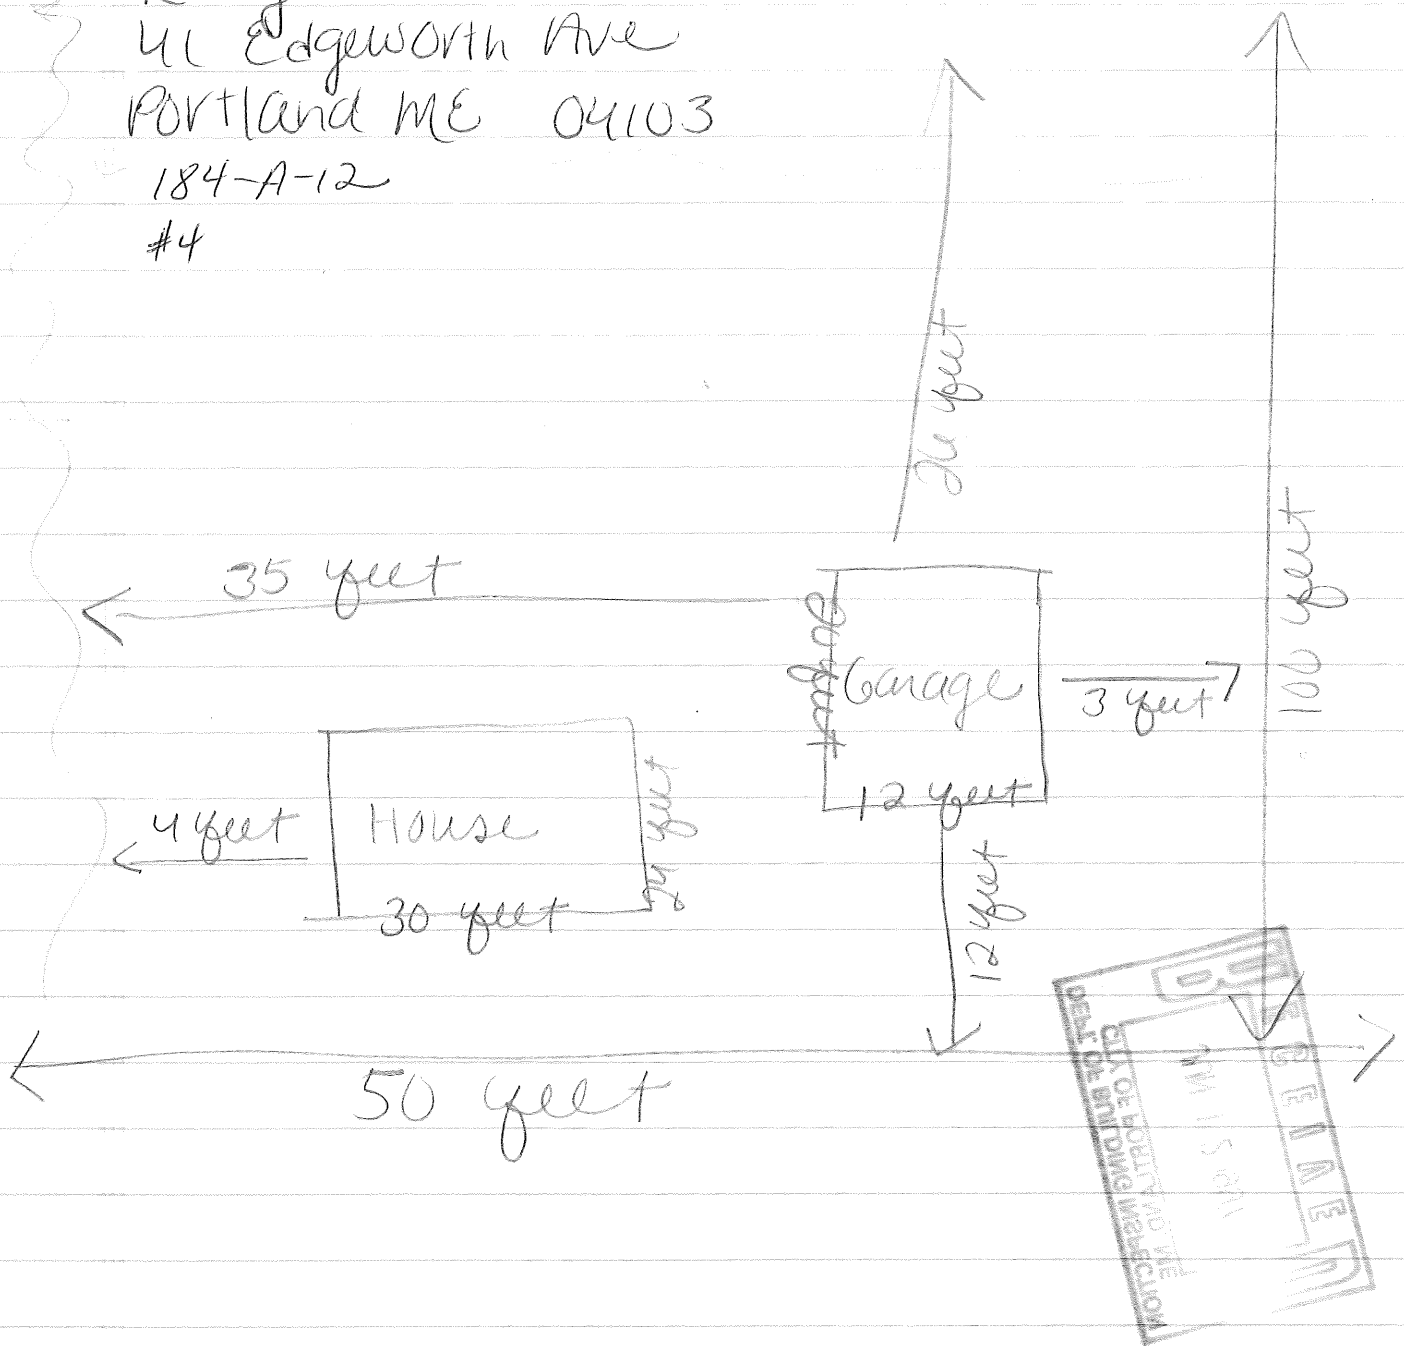 41 Edgeworth Ave
Portland ME 04103
184-A-12
#4
26 feet
35 feet
100 feet
Garage
3 feet
12 feet
4 feet
House
24 feet
30 feet
12 feet
50 feet
RECEIVED
DEPT. OF BUILDING INSPECTION
CITY OF PORTLAND, ME